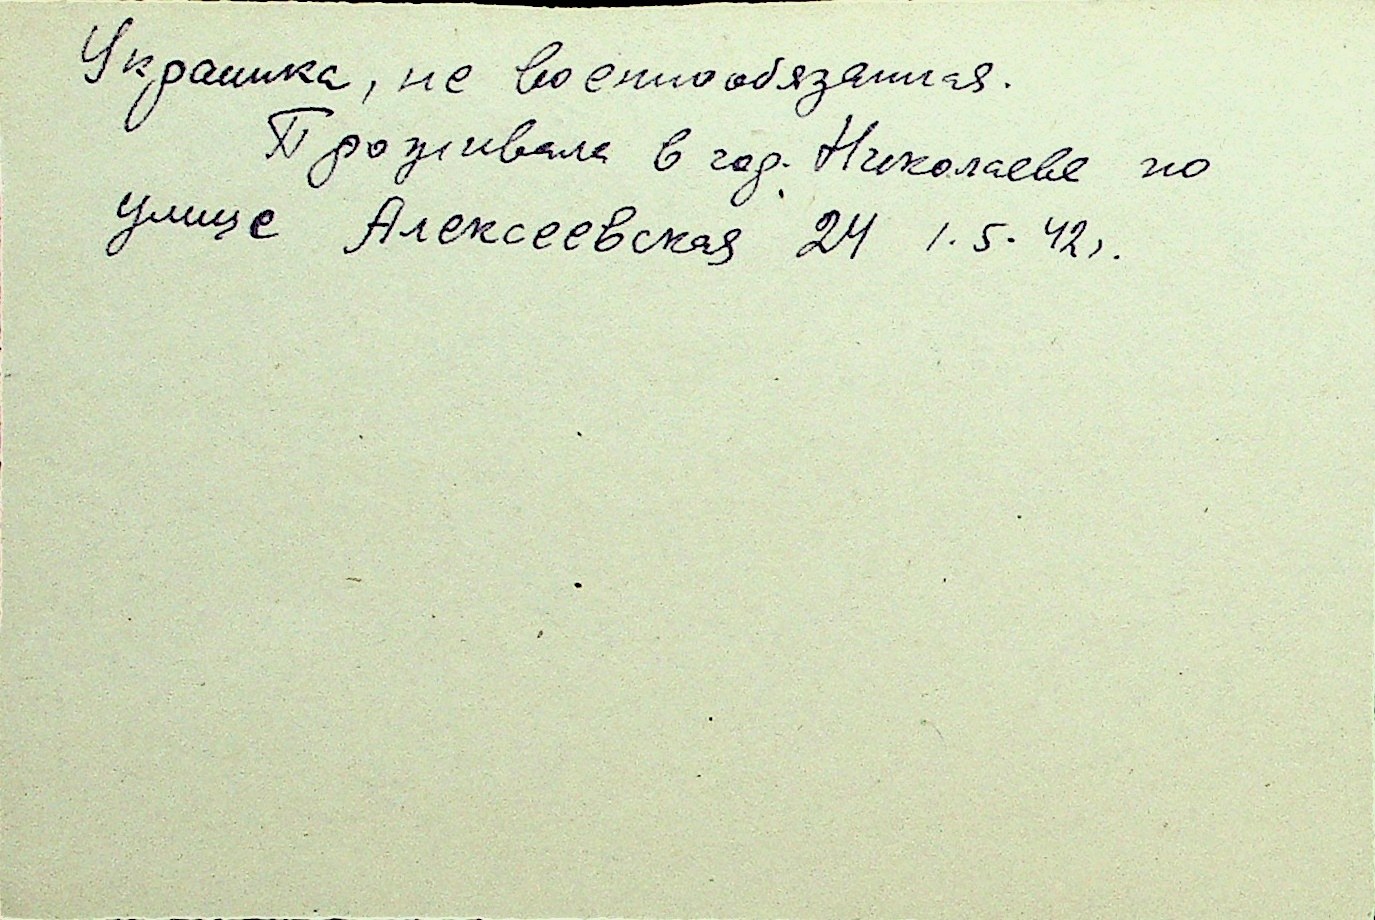 Украинка, не военнообязанная.
Проживала в гор. Николаеве по
улице Алексеевская 24 1.5.42г.